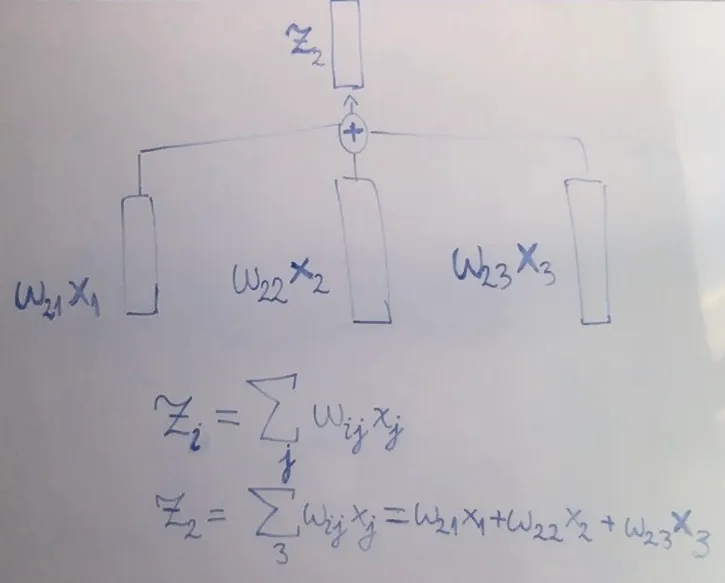 Z₂
+
W₂₁X₁
W₂₂X₂
W₂₃X₃
Zᵢ = ∑ⱼ Wᵢⱼxⱼ
Z₂ = ∑₃ Wᵢⱼxⱼ = W₂₁X₁+W₂₂X₂+W₂₃X₃